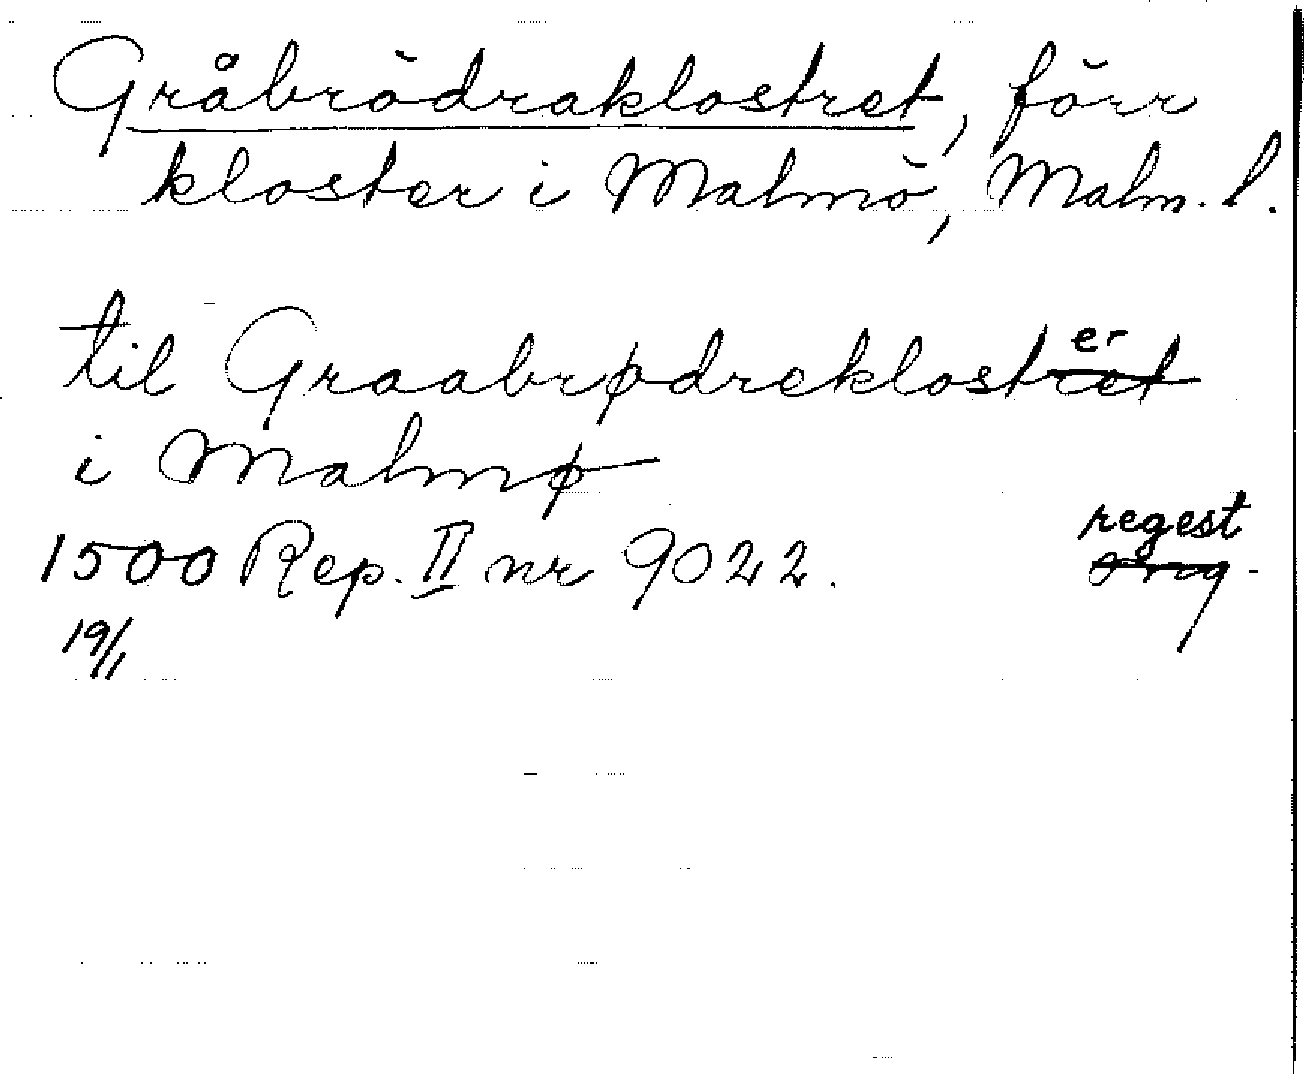 Gråbrödraklostret, förr
kloster i Malmö, Malm. l.
til Graabrødreklostret er
i Malmø
regest
1500 Rep. II nr 9022. orig.
19/1